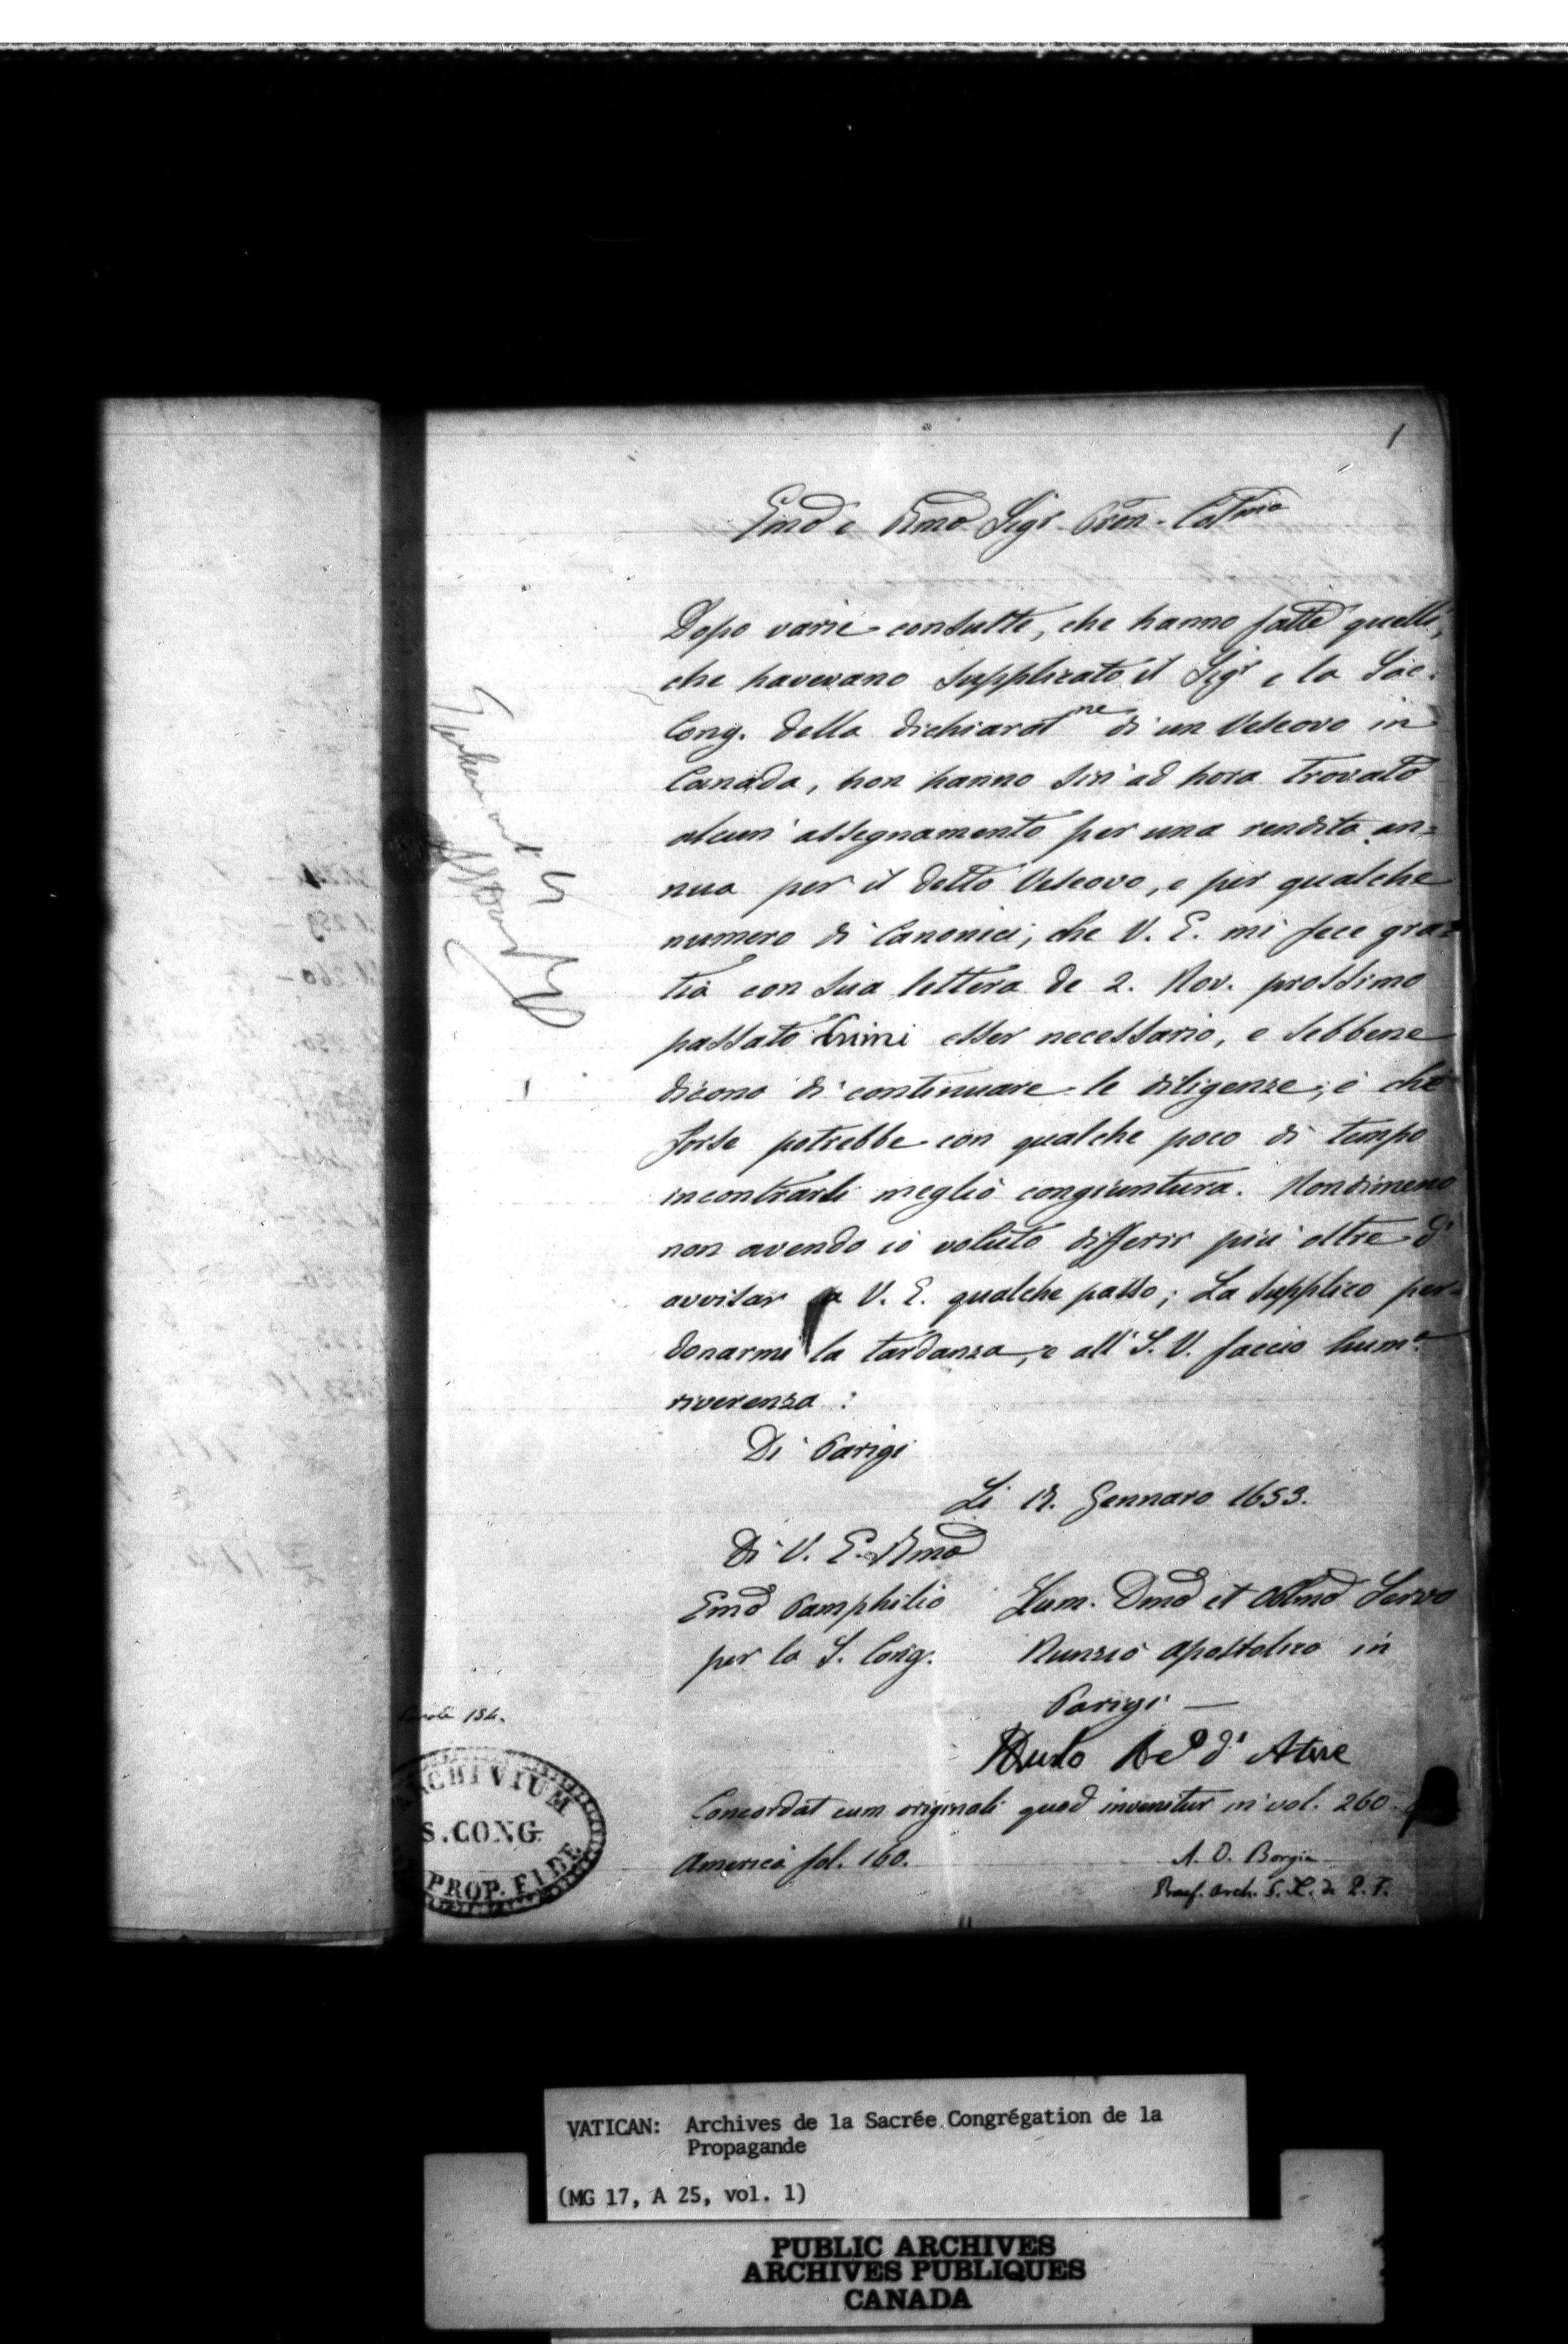 1
Emo e Rmo Sigr Pron. Colmo
Dopo varie consulte, che hanno fatto quelli,
che havevano supplicato il Sigr e la Sac.
Cong. della dichiaratne di un Vescovo in
Canada, non hanno sin ad hora trovato
alcun assegnamento per una rendita an=
nua per il detto Vescovo, e per qualche
numero di Canonici, che V. E. mi fece gra=
tia con sua lettera de 2. Nov. prossimo
passato esser necessario, e sebbene
dicono di continuare le diligenze, e che
forse potrebbe con qualche poco di tempo
incontrarsi meglio congiuntura. Nondimeno
non avendo io voluto differir più oltre d'
avvisar a V. E. qualche passo; La supplico per=
donarmi la tardanza, e all' S. V. faccio hum.a
riverenza:
Di Parigi
Li Gennaro 1653.
Di V. E. Rma
Emo Pamphilio
per la S. Cong.
Hum. Dmo et Obmo Servo
Nunzio Apostolico in
Parigi —
d' Atene
Concordat cum originali quod invenitur in vol. 260.
America fol. 160.
A. D. Borgia
Praef. Arch. S. C. de P. F.
154.
ARCHIVIUM
S. CONG.
PROP. FIDE
VATICAN: Archives de la Sacrée Congrégation de la
Propagande
(MG 17, A 25, vol. 1)
PUBLIC ARCHIVES
ARCHIVES PUBLIQUES
CANADA